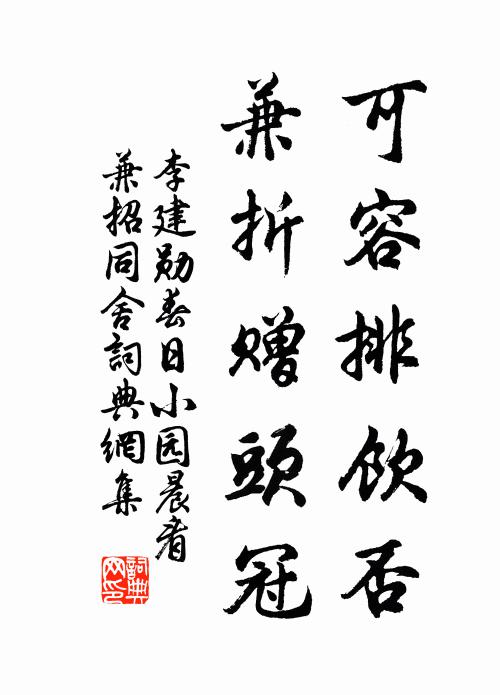 可容排飲否
兼折贈頭冠
李建勋春日小园晨看
兼招同舍詞典網集
詞典网印